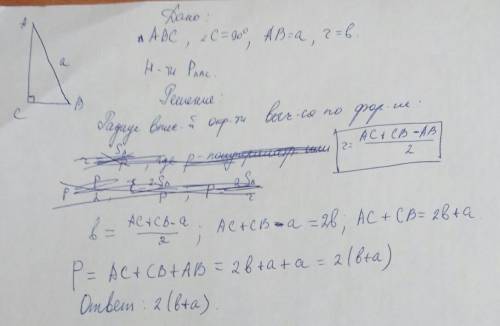 Дано:
△ABC, ∠C=90°, AB=a, r=b.
Н-ти P△ABC.
Решение:
A
a
C
B
Радиус впис-й окр-ти выч-ся по фор-ле:
r = AC+CB-AB / 2
b = AC+CB-a / 2 ; AC+CB-a = 2b; AC+CB = 2b+a.
P = AC+CB+AB = 2b+a+a = 2(b+a)
Ответ: 2(b+a).